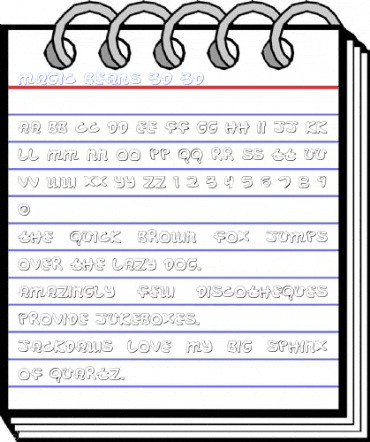 MAGIC BEANS 3D 3D
AA BB CC DD EE FF GG HH II JJ KK
LL MM NN OO PP QQ RR SS TT UU
VV WW XX YY ZZ 1 2 3 4 5 6 7 8 9
0
THE QUICK BROWN FOX JUMPS
OVER THE LAZY DOG.
AMAZINGLY FEW DISCOTHEQUES
PROVIDE JUKEBOXES.
JACKDAWS LOVE MY BIG SPHINX
OF QUARTZ.